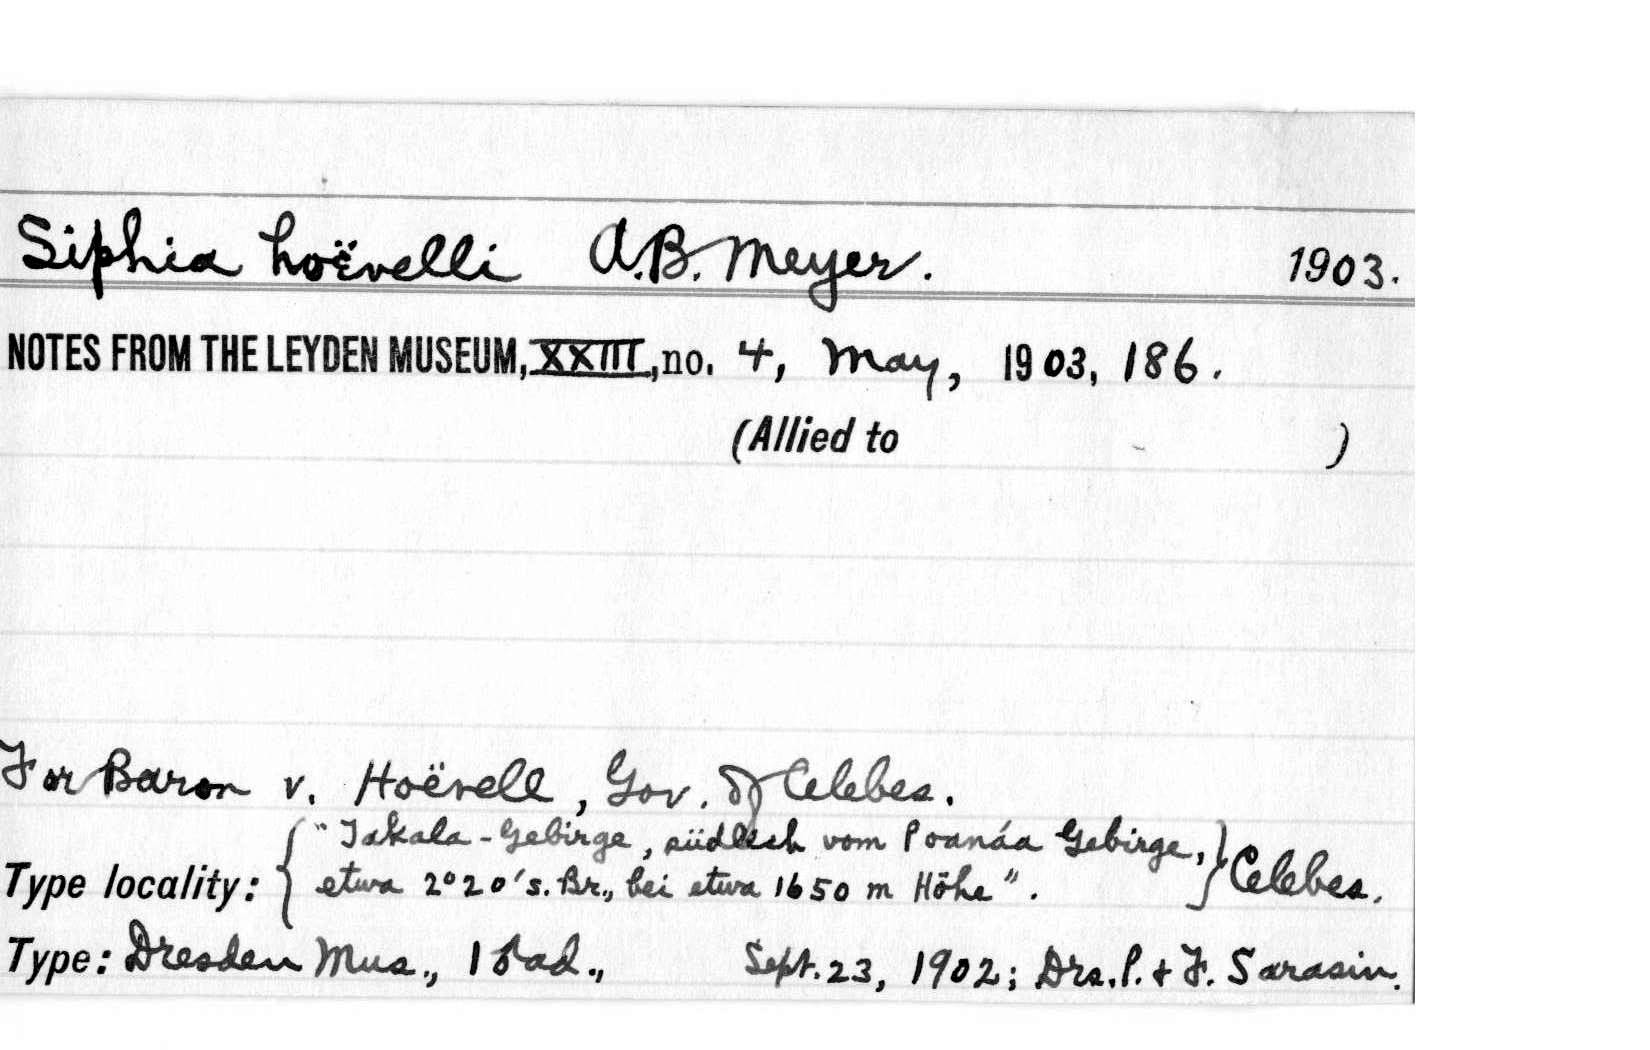 Siphia hoëvelli A.B. Meyer. 1903.
NOTES FROM THE LEYDEN MUSEUM, XXIII, no. 4, May, 1903, 186.
(Allied to )
For Baron v. Hoëvell, Gov. of Celebes.
"Takala-Gebirge, südlich vom Poanáa Gebirge,
Type locality: { etwa 2°20's. Br., bei etwa 1650 m Höhe". } Celebes.
Type: Dresden Mus., 1 ♂ ad., Sept. 23, 1902; Drs. P. & F. Sarasin.